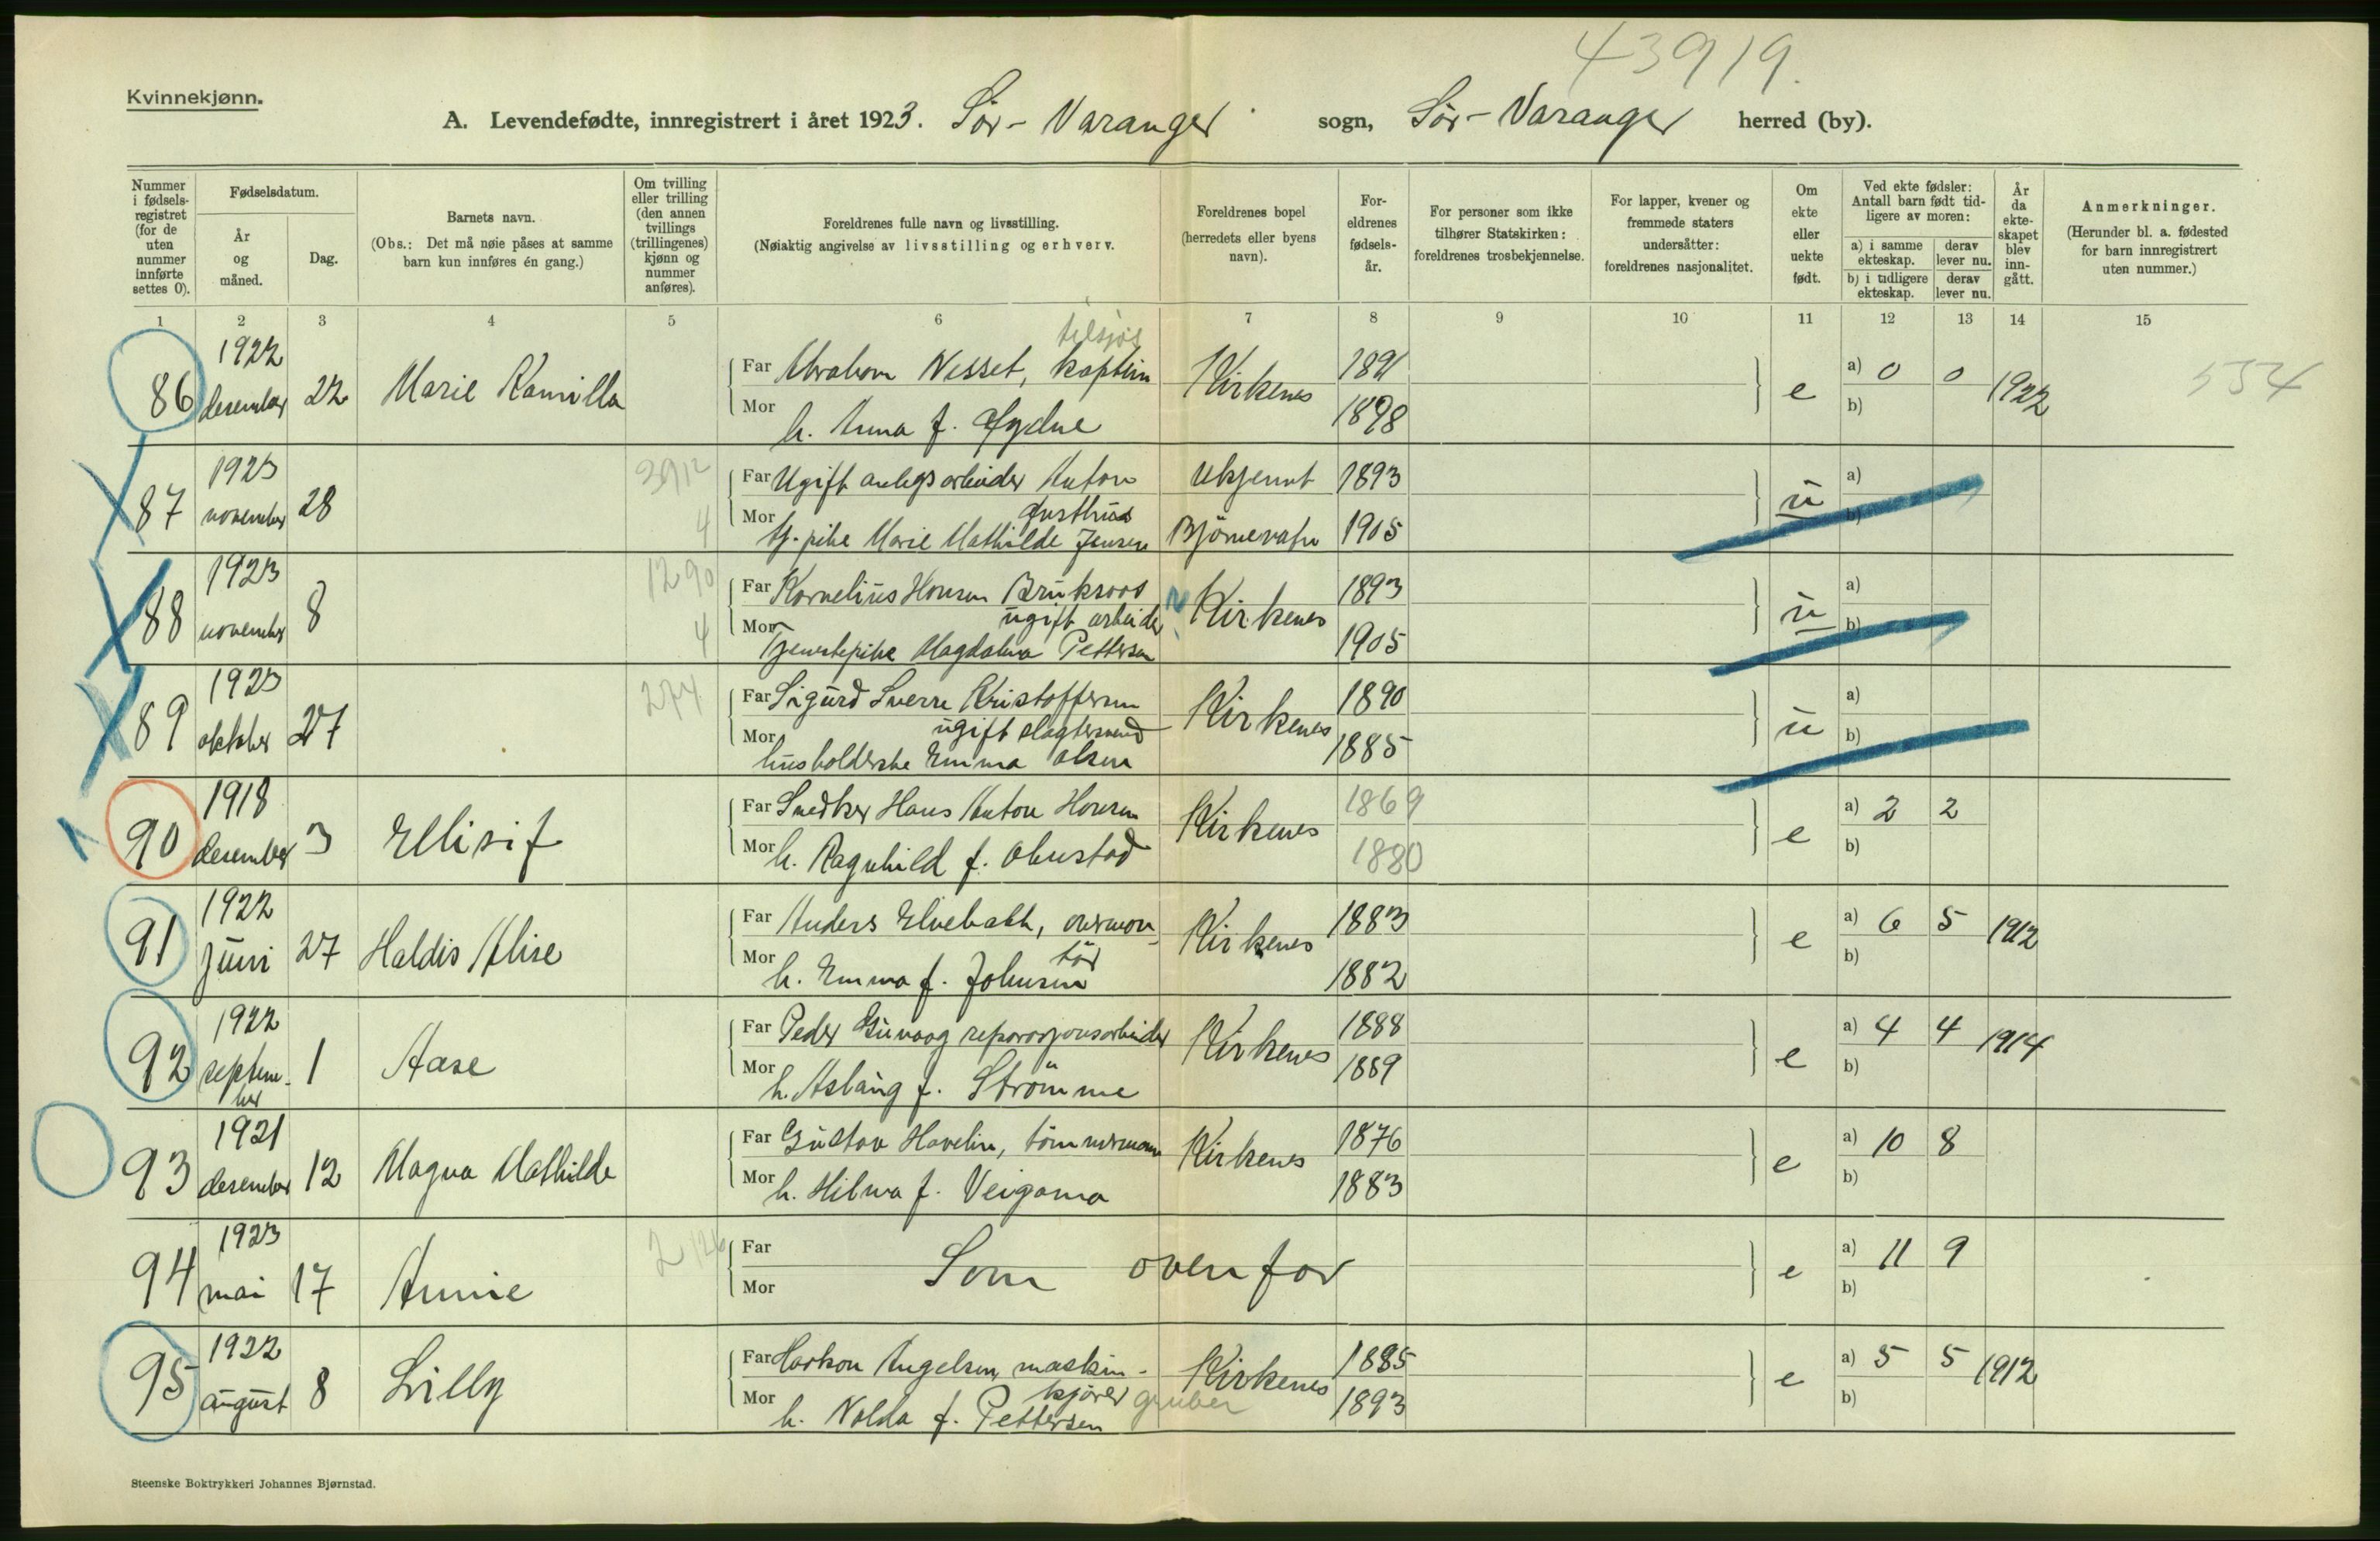 43919.
Kvinnekjønn.
A. Levendefødte, innregistrert i året 1923. Sör-Varanger sogn, Sör-Varanger herred (by).
Nummer i fødsels-registret (for de uten nummer innførte settes 0).
Fødselsdatum.
År og måned.
Dag.
Barnets navn.
(Obs.: Det må nøie påses at samme barn kun innføres én gang.)
Om tvilling eller trilling (den annen tvillings (trillingenes) kjønn og nummer anføres).
Foreldrenes fulle navn og livsstilling.
(Nøiaktig angivelse av livsstilling og erhverv.
Foreldrenes bopel (herredets eller byens navn).
For-eldrenes fødsels-år.
For personer som ikke tilhører Statskirken: foreldrenes trosbekjennelse.
For lapper, kvener og fremmede staters undersåtter: foreldrenes nasjonalitet.
Om ekte eller uekte født.
Ved ekte fødsler: Antall barn født tid-ligere av moren:
a) i samme ekteskap. derav lever nu.
b) i tidligere ekteskap. derav lever nu.
År da ekte-skapet blev inn-gått.
Anmerkninger.
(Herunder bl. a. fødested for barn innregistrert uten nummer.)
1 2 3 4 5 6 7 8 9 10 11 12 13 14 15
86 1922 desember 22 Marie Kamilla
Far Abraham Nesset, kaptein Kirkenes 1891 e a) 0 0 1922 554
Mor h. Anna f. 1898 b)
87 1923 november 28 3912 4
Far Ugift anlegsarbeider Anton ukjennt 1893 ü a)
Mor tj. pike Marie Mathilde Jensen Björnevatn 1905 b)
88 1923 november 8 1290 4
Far Kornelius Hansen ugift arbeider Kirkenes 1893 ü a)
Mor Tjenestepike Magdalena Pettersen 1905 b)
89 1923 oktober 27 274
Far Sigurd Sverre Kristoffersen ugift slagtersvend Kirkenes 1890 ü a)
Mor husholderske Emma Olsen 1885 b)
90 1918 desember 3 Ellisif
Far Snedker Hans Anton Hansen Kirkenes 1869 e a) 2 2
Mor h. Ragnhild f. Olmstad 1880 b)
91 1922 juni 27 Haldis Alise
Far Anders Elvebakk, overmontör Kirkenes 1883 e a) 6 5 1912
Mor h. Emma f. Johnsen 1882 b)
92 1922 september 1 Aase
Far Peder reparasjonsarbeider Kirkenes 1888 e a) 4 4 1914
Mor h. Aslaug f. Strömme 1889 b)
93 1921 desember 12 Magna Mathilde
Far Gustav Havelin, tömmermann Kirkenes 1876 e a) 10 8
Mor h. Hilma f. Veigama 1883 b)
94 1923 mai 17 Annie 2126
Far Mor Som ovenfor e a) 11 9
b)
95 1922 august 8 Lilly
Far Haakon Angelsen, maskinkjører gruber Kirkenes 1885 e a) 5 5 1912
Mor h. Nalda f. Pettersen 1893 b)
Steenske Boktrykkeri Johannes Bjørnstad.